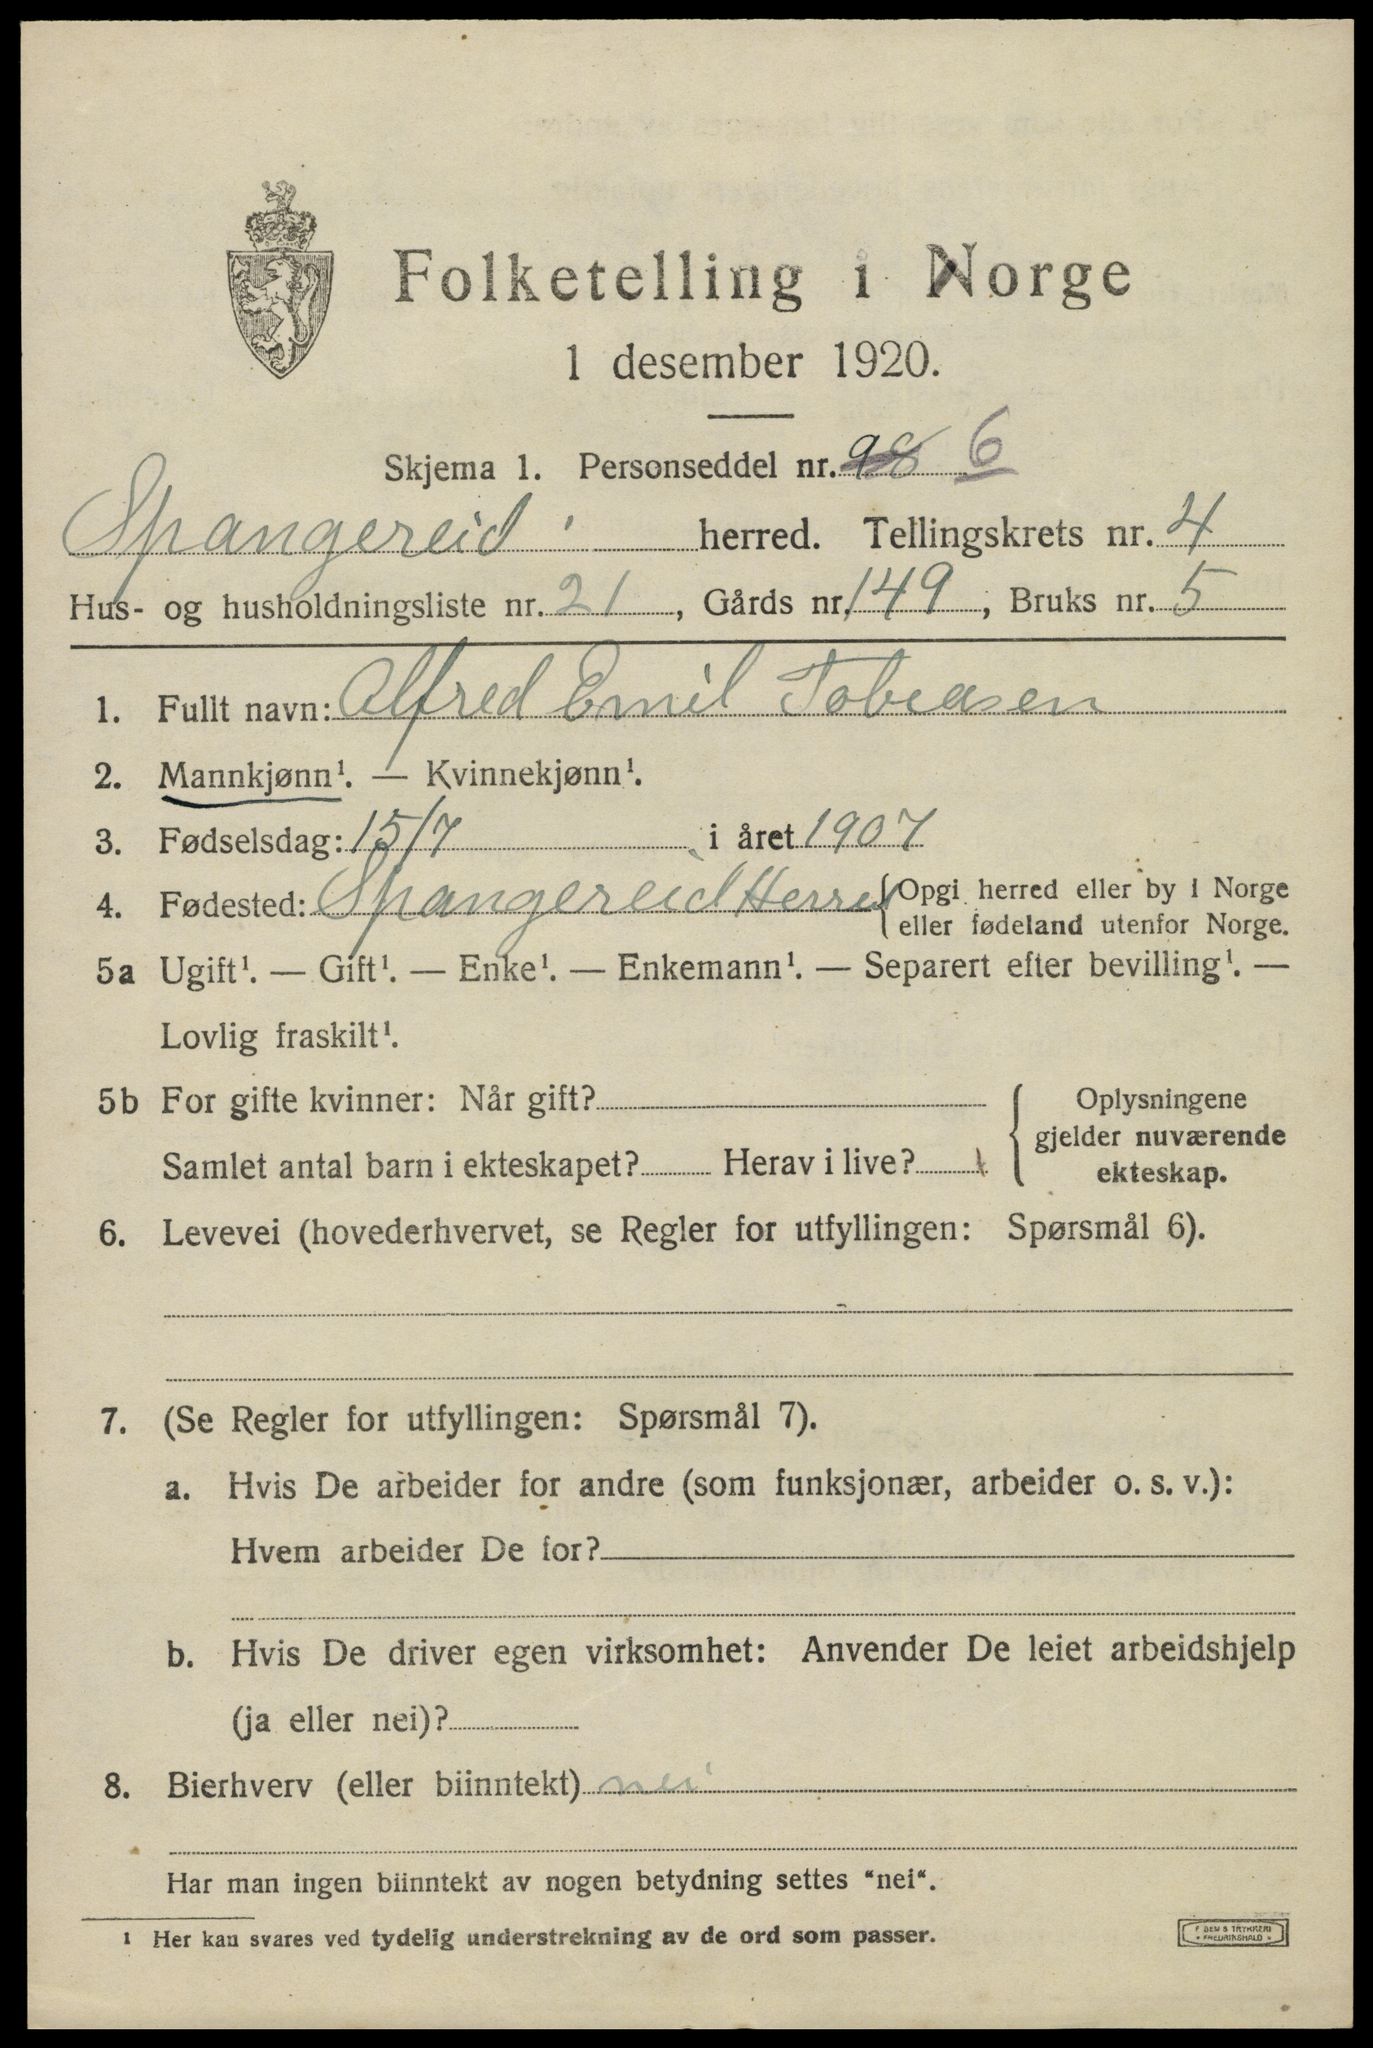 Folketelling i Norge
1 desember 1920.
Skjema 1. Personseddel nr. 98 6
Spangereid herred. Tellingskrets nr. 4
Hus- og husholdningsliste nr. 21, Gårds nr. 149, Bruks nr. 5
1. Fullt navn: Alfred Emil Tobiasen
2. Mannkjønn¹. — Kvinnekjønn¹.
3. Fødselsdag: 15/7 i året 1907
4. Fødested: Spangereid Herred {Opgi herred eller by i Norge
eller fødeland utenfor Norge.
5a Ugift¹. — Gift¹. — Enke¹. — Enkemann¹. — Separert efter bevilling¹. —
Lovlig fraskilt¹.
5b For gifte kvinner: Når gift?
Samlet antal barn i ekteskapet? Herav i live?
Oplysningene
gjelder nuværende
ekteskap.
6. Levevei (hovederhvervet, se Regler for utfyllingen: Spørsmål 6).
7. (Se Regler for utfyllingen: Spørsmål 7).
a. Hvis De arbeider for andre (som funksjonær, arbeider o. s. v.):
Hvem arbeider De for?
b. Hvis De driver egen virksomhet: Anvender De leiet arbeidshjelp
(ja eller nei)?
8. Bierhverv (eller biinntekt) nei
Har man ingen biinntekt av nogen betydning settes "nei".
¹ Her kan svares ved tydelig understrekning av de ord som passer.
TRYKKERI
FREDRIKSHALD